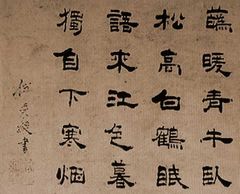 蘤暖青牛臥
松高白鶴眠
語來江色暮
獨自下寒烟
書